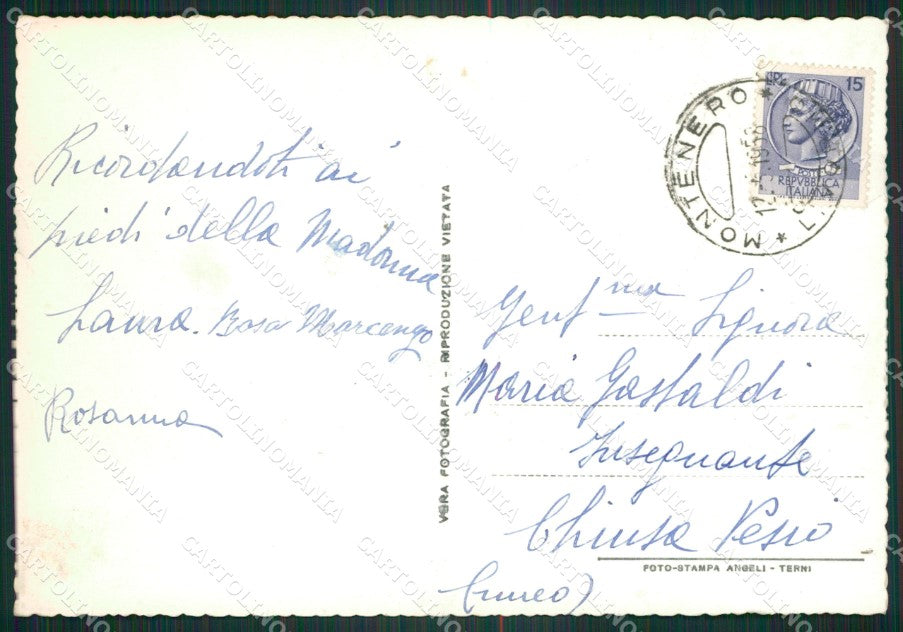 Ricordandoti ai
piedi della Madonna
Laura. Bosa Marcengo
Rosanna
VERA FOTOGRAFIA - RIPRODUZIONE VIETATA
MONTENERO
LIRE 15
POSTE
REPVBBLICA
ITALIANA
Gentma Signora
Maria Gastaldi
Insegnante
Chiusa Pesio
(Cuneo)
FOTO-STAMPA ANGELI - TERNI
CARTOLINOMANIA